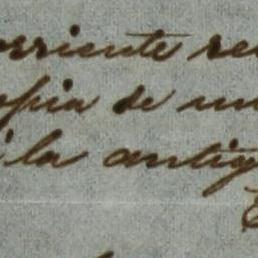 orriente re
opia de un
la antig